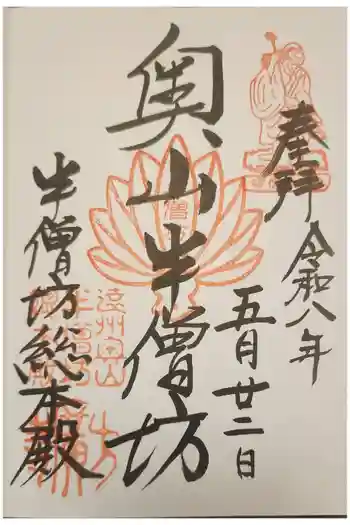 奉拝
令和八年
五月廿二日
奥山半僧坊
半僧坊総本殿
遠州奥山